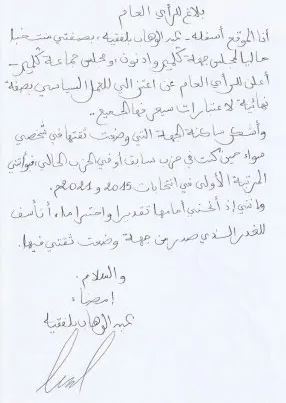 بلاغ للرأي العام
أنا الموقع أسفله - عبد الوهاب بلفقيه، بصفتي منتخبا
حاليا بمجلس جهة كلميم وادنون و بمجلس جماعة كلميم -
أعلن للرأي العام عن اعتزالي للعمل السياسي بصفة
نهائية لاعتبارات سيعرفها الجميع..
وأشكر ساكنة الجهة التي وضعت ثقتها في شخصي
سواء حين كنت في حزب سابق أو في الحزب الحالي فبوأتني
المرتبة الأولى في انتخابات 2015 و 2021م.
وإنني إذ أنحني أمامها تقديرا واحتراما، أتأسف
للغدر الذي صدر من جهة وضعت ثقتي فيها.
والسلام.
إمضاء
عبد الوهاب بلفقيه